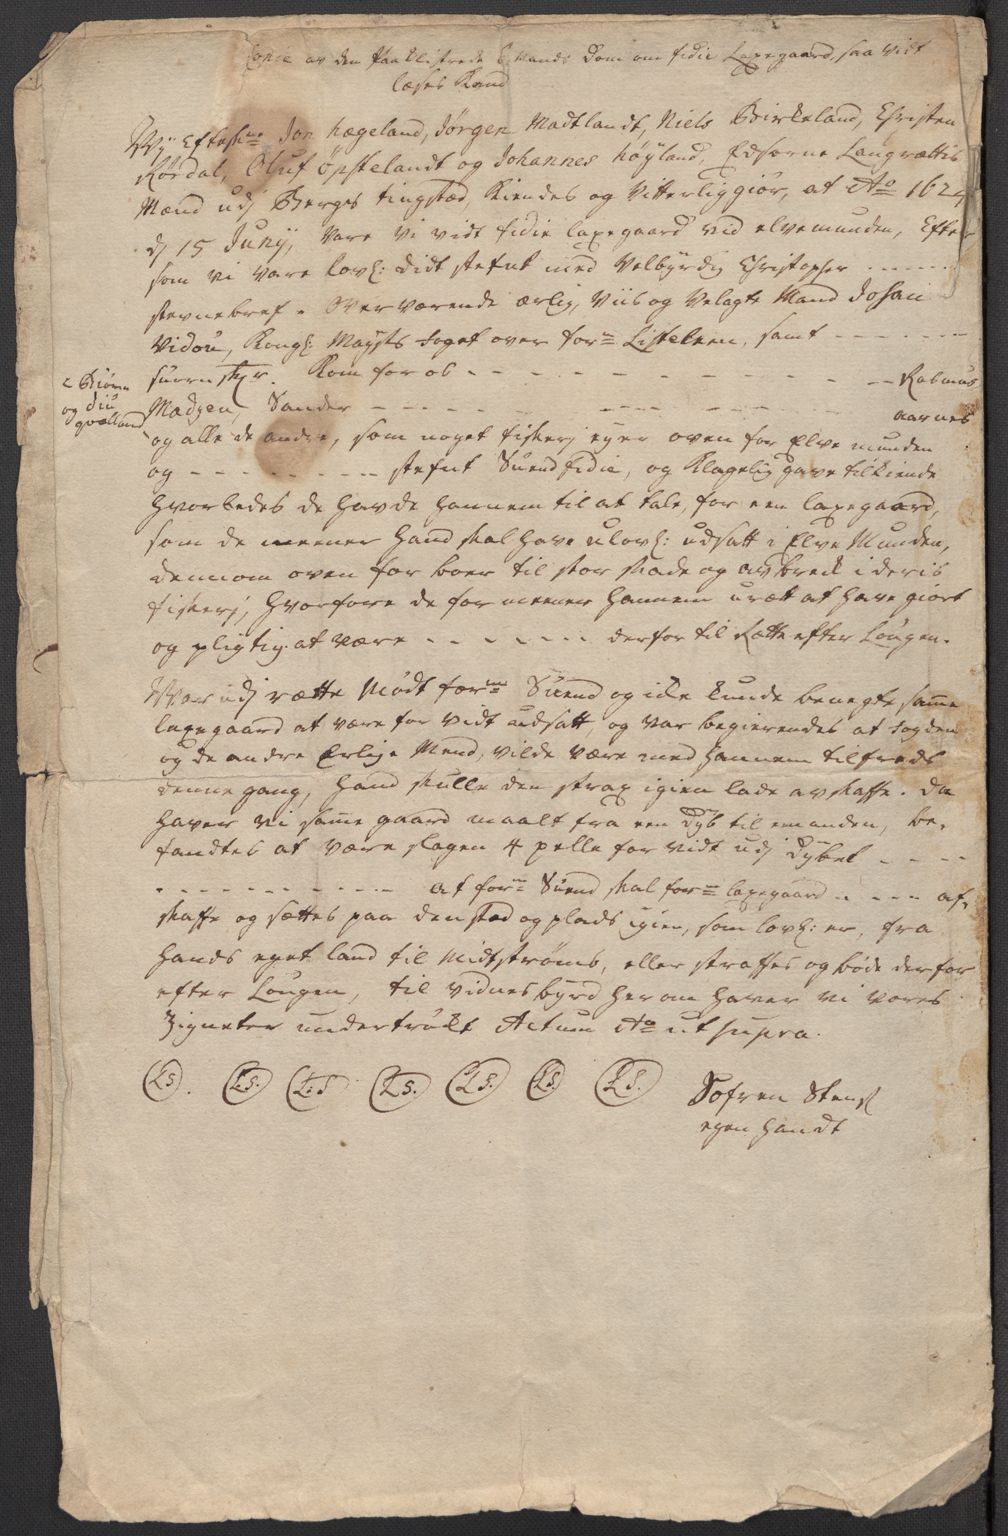 Copie av den paaklistrede 6 Mands Dom om fidie Laxegaard, saa vidt
læses Kand
Wÿ Effterskne Jon hægeland, Jörgen Madtlandt, Niels Birkeland, Christen
Rördal, Oluf öpstelandt og Johannes höÿland, Edsorne Laugrættis
Mænd udj Berges tingsted, Kiendes og Vitterliggiör, at Ao 162
d 15 Junÿ, Vare vi vidt fidie laxegaard ved elvemunden, Efter
som vi vare lovl: didt stefnt med Velbÿrdig Christopher - - - - -
stevnebref. Overværende ærlig, Viis og Velagte Mand Johan
Vidou, Kongl: Maÿts foget over forne Listelehn, samt - - - - - -
suorn skr. Kom for os - - - - - - - - - - - - - Rasmus
< Biörn og Siu qvælland
Madzen, Sander - - - - - - - - - - - - aarnes
og alle de andre, som noget fiskerj eyer oven for Elve munden
og - - - - - - - - stefnt Suend fidie, og Klagelig gave tilkiende
hvorledes de havde hannem til at tale, for een laxegaard,
som de meener hand skal have ulovl: udsatt i Elve Munden,
dennom oven for boer til stor skade og avbreck i deris
fiskerj, hvorfore de formeener hannem urætt at have giört
og pligtig at være - - - - - - derfor til Rætte efter Lougen.
War udj rætte Mödt forne Suend og icke kunde benegte samme
laxegaard at være for vidt udsatt, og var begierendes at fogden
og de andre Erlige Mend, vilde være med hannem tilfreds
denne gang, hand skulle den strax igien lade avskaffe. Da
haver vi samme gaard maalt fra een Dÿb til emanden, be-
fandtes at være slagen 4 pelle for vidt udj Dÿbet - - - -
- - - - - - - - - - - at forne Suend skal forne laxegaard - - - - af-
skaffe og sættes paa den stad og plads igien, som lovl: er, fra
hands eget land til Midtströms, eller straffes og böde derfor
efter Lougen, til Vidnesbÿrd herom haver vi vores
Zigneter undertröckt Actum Ao ut supra.
LS. LS. LS LS. LS. LS LS.
Sofren Stens
egen handt